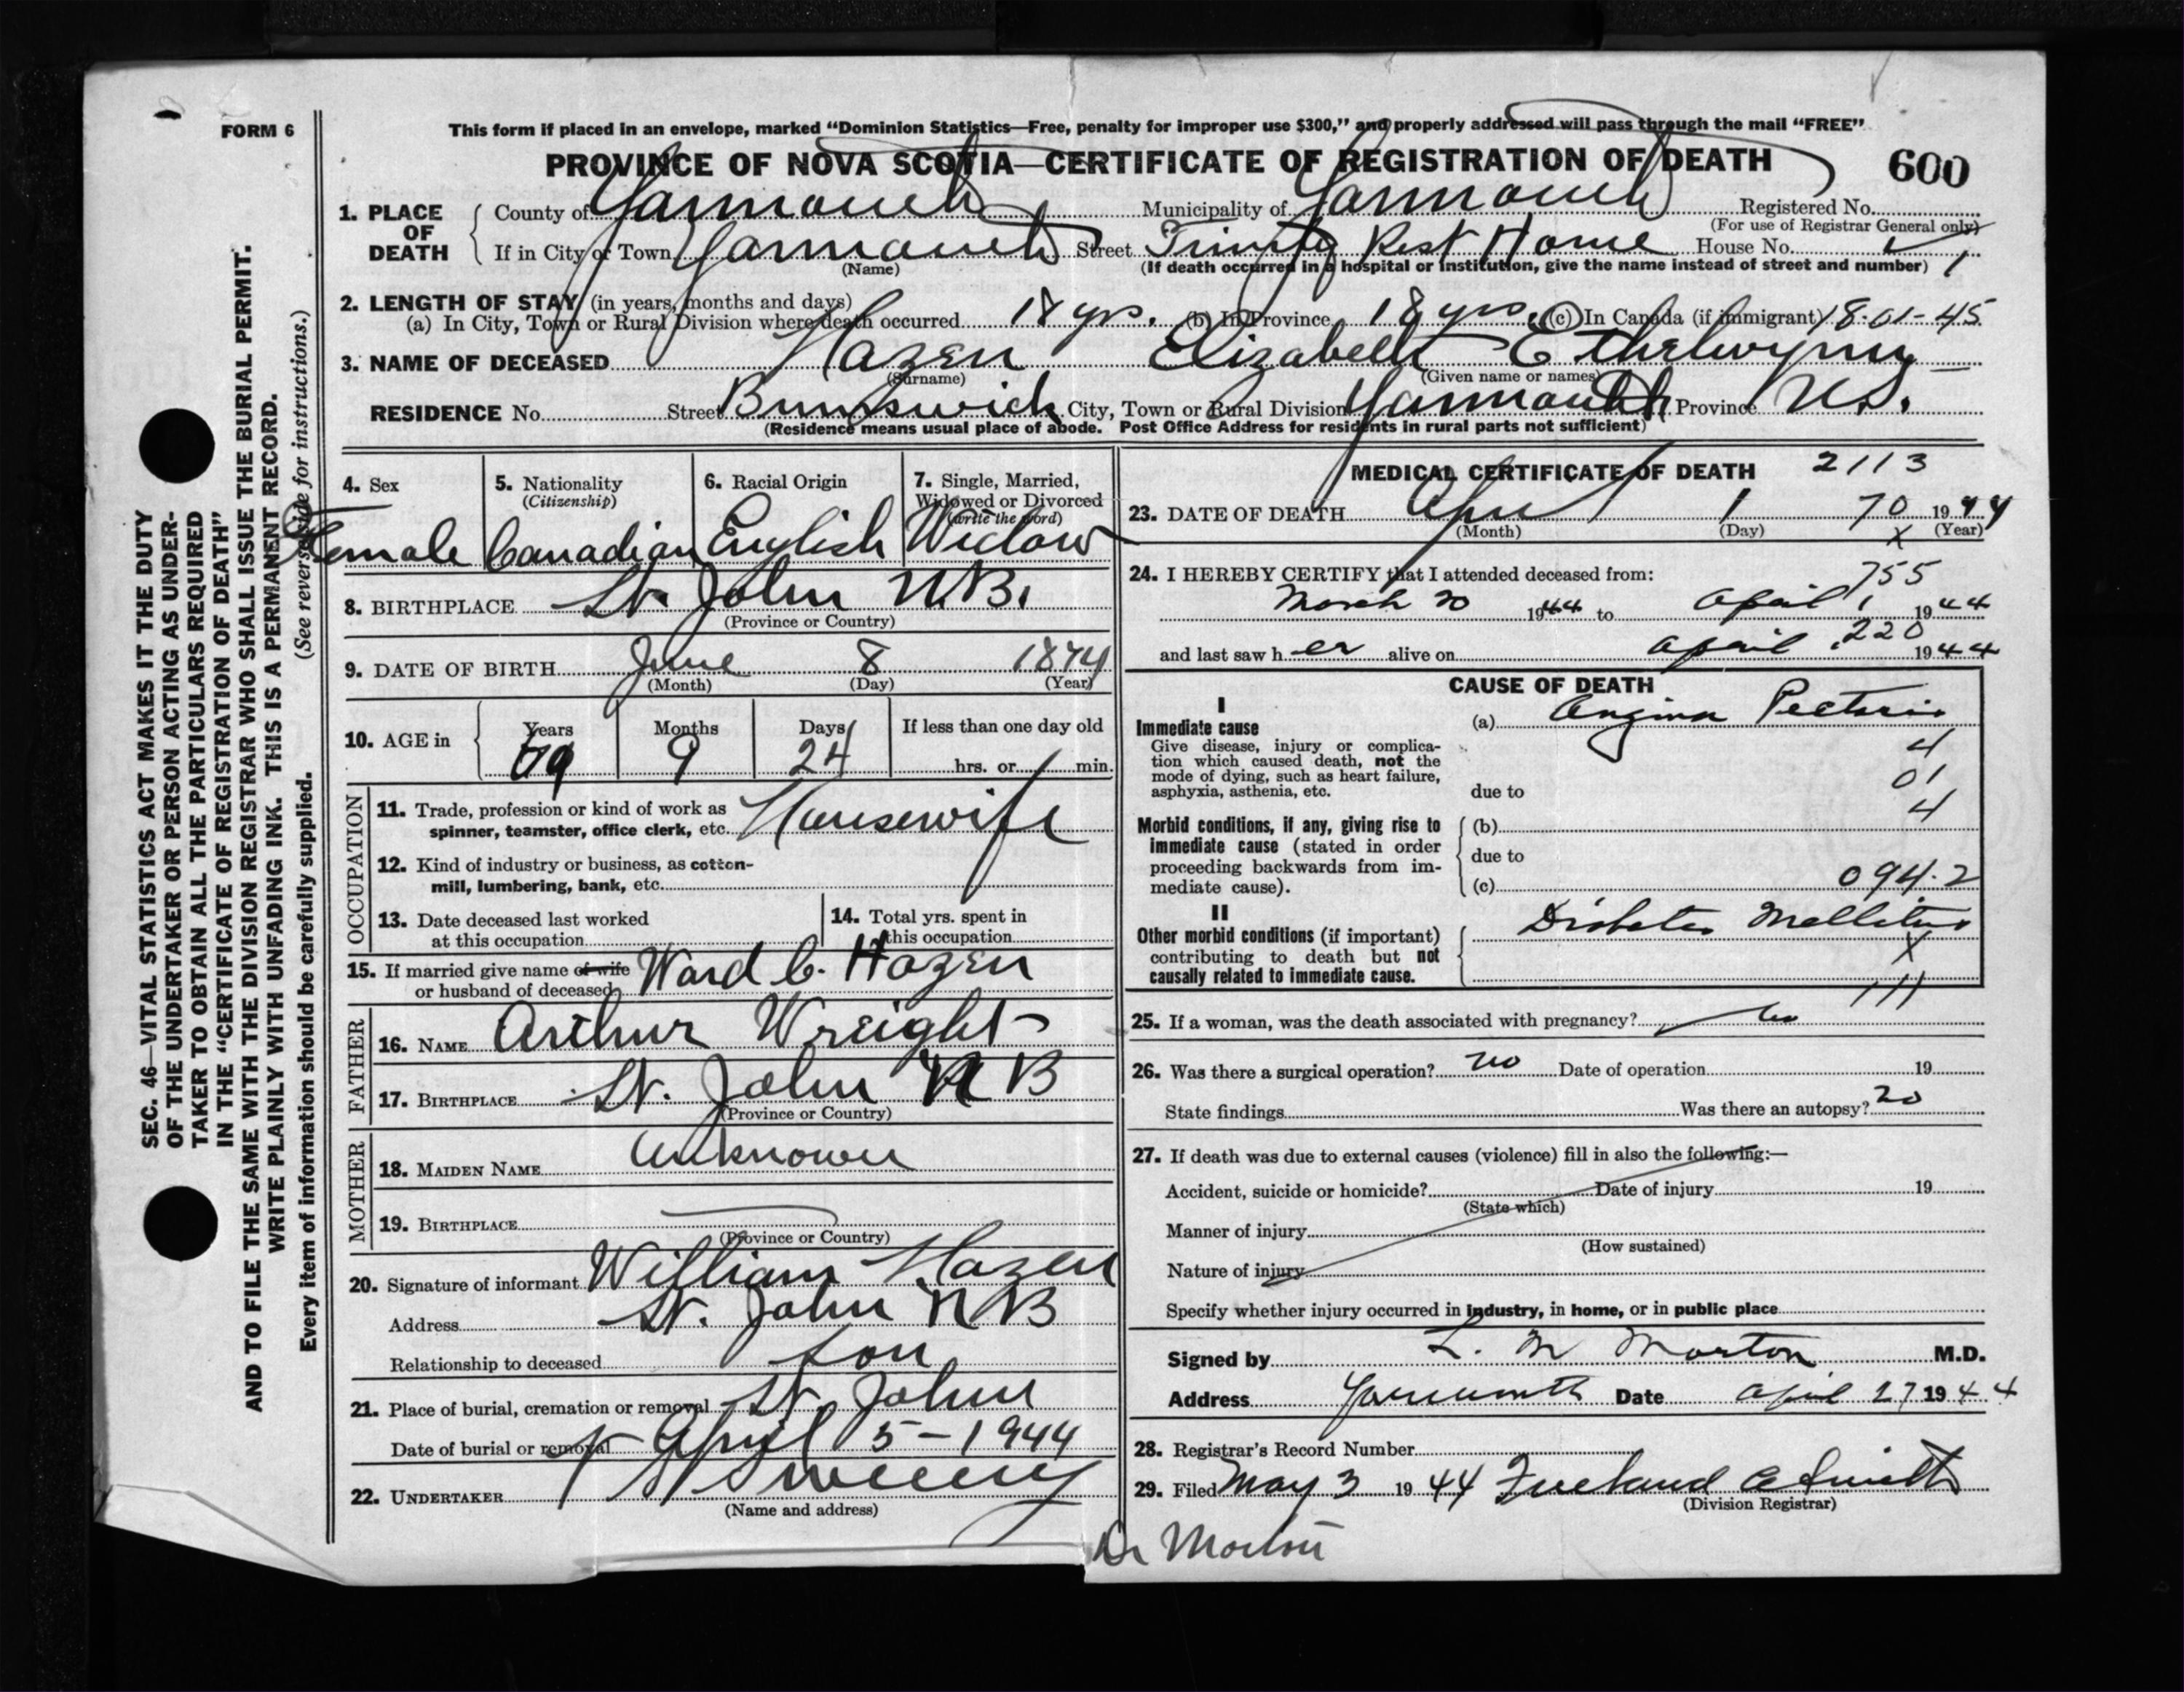 FORM 6
This form if placed in an envelope, marked “Dominion Statistics—Free, penalty for improper use $300,” and properly addressed will pass through the mail “FREE”
PROVINCE OF NOVA SCOTIA—CERTIFICATE OF REGISTRATION OF DEATH 600
1. PLACE OF DEATH { County of Yarmouth Municipality of Yarmouth Registered No.
(For use of Registrar General only)
If in City or Town Yarmouth Street Trinity Rest Home House No.
(Name) (If death occurred in a hospital or institution, give the name instead of street and number) 1
2. LENGTH OF STAY (in years, months and days)
(a) In City, Town or Rural Division where death occurred 18 yrs. (b) In Province 18 yrs. (c) In Canada (if immigrant) 18-01-45
3. NAME OF DECEASED Hazen Elizabeth Ethelwynn
(Surname) (Given name or names)
RESIDENCE No. Street Brunswick City, Town or Rural Division Yarmouth Province N.S.
(Residence means usual place of abode. Post Office Address for residents in rural parts not sufficient)
4. Sex 5. Nationality (Citizenship) 6. Racial Origin 7. Single, Married, Widowed or Divorced (write the word)
Female Canadian English Widow
8. BIRTHPLACE St. John N.B.
(Province or Country)
9. DATE OF BIRTH June 8 1874
(Month) (Day) (Year)
10. AGE in { Years Months Days If less than one day old
69 9 24 hrs. or min.
OCCUPATION
11. Trade, profession or kind of work as spinner, teamster, office clerk, etc. Housewife
12. Kind of industry or business, as cotton-mill, lumbering, bank, etc.
13. Date deceased last worked at this occupation
14. Total yrs. spent in this occupation
15. If married give name of wife or husband of deceased Ward C. Hazen
FATHER
16. NAME Arthur Wreight
17. BIRTHPLACE St. John N B
(Province or Country)
MOTHER
18. MAIDEN NAME Unknown
19. BIRTHPLACE
(Province or Country)
20. Signature of informant William Hazen
Address St. John N B
Relationship to deceased Son
21. Place of burial, cremation or removal St. John
Date of burial or removal April 5-1944
22. UNDERTAKER Sweeny
(Name and address)
MEDICAL CERTIFICATE OF DEATH 2113
23. DATE OF DEATH April 1 70 1944
(Month) (Day) x (Year)
24. I HEREBY CERTIFY that I attended deceased from: 755
March 20 1944 to April 1 1944
220
and last saw her alive on April 1944
CAUSE OF DEATH
I
Immediate cause (a) Angina Pectoris
Give disease, injury or complication which caused death, not the mode of dying, such as heart failure, asphyxia, asthenia, etc.
4
01
due to
4
Morbid conditions, if any, giving rise to immediate cause (stated in order proceeding backwards from immediate cause).
(b)
due to
(c) 094.2
II
Other morbid conditions (if important) contributing to death but not causally related to immediate cause. Diabetes Mellitus
X
111
25. If a woman, was the death associated with pregnancy? no
26. Was there a surgical operation? no Date of operation 19
State findings Was there an autopsy? no
27. If death was due to external causes (violence) fill in also the following:—
Accident, suicide or homicide? Date of injury 19
(State which)
Manner of injury
(How sustained)
Nature of injury
Specify whether injury occurred in industry, in home, or in public place
Signed by L. M Morton M.D.
Address Yarmouth Date April 27 1944
28. Registrar's Record Number
29. Filed May 3 1944
(Division Registrar)
Dr Morton
SEC. 46—VITAL STATISTICS ACT MAKES IT THE DUTY
OF THE UNDERTAKER OR PERSON ACTING AS UNDER-
TAKER TO OBTAIN ALL THE PARTICULARS REQUIRED
IN THE “CERTIFICATE OF REGISTRATION OF DEATH”
AND TO FILE THE SAME WITH THE DIVISION REGISTRAR WHO SHALL ISSUE THE BURIAL PERMIT.
WRITE PLAINLY WITH UNFADING INK. THIS IS A PERMANENT RECORD.
Every item of information should be carefully supplied. (See reverse side for instructions.)